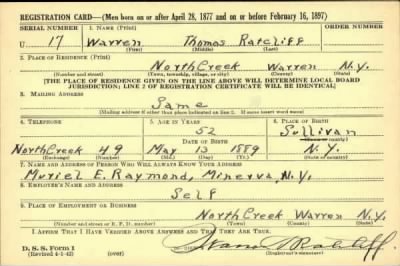 REGISTRATION CARD—(Men born on or after April 28, 1877 and on or before February 16, 1897)
SERIAL NUMBER 1. NAME (Print) ORDER NUMBER
U 17 Warren Thomas Ratcliff
(First) (Middle) (Last)
2. PLACE OF RESIDENCE (Print)
North Creek Warren N.Y.
(Number and street) (Town, township, village, or city) (County) (State)
[THE PLACE OF RESIDENCE GIVEN ON THE LINE ABOVE WILL DETERMINE LOCAL BOARD
JURISDICTION; LINE 2 OF REGISTRATION CERTIFICATE WILL BE IDENTICAL]
3. MAILING ADDRESS
Same
(Mailing address if other than place indicated on line 2. If same insert word same)
4. TELEPHONE 5. AGE IN YEARS 6. PLACE OF BIRTH
52 Sullivan
DATE OF BIRTH (Town or county)
North Creek 49 May 13 1889 N.Y.
(Exchange) (Number) (Mo.) (Day) (Yr.) (State or country)
7. NAME AND ADDRESS OF PERSON WHO WILL ALWAYS KNOW YOUR ADDRESS
Muriel E. Raymond, Minerva, N.Y.
8. EMPLOYER'S NAME AND ADDRESS
Self
9. PLACE OF EMPLOYMENT OR BUSINESS
North Creek Warren N.Y.
(Number and street or R. F. D. number) (Town) (County) (State)
I AFFIRM THAT I HAVE VERIFIED ABOVE ANSWERS AND THAT THEY ARE TRUE.
D. S. S. Form 1
(Revised 4-1-42) (over) (Registrant's signature)